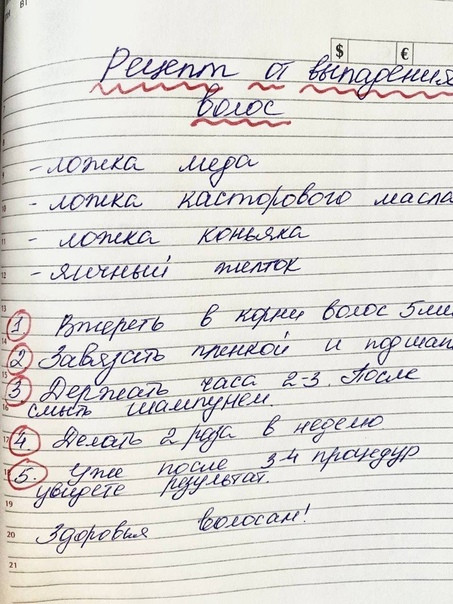 $ €
Рецепт от выпадения
волос
- ложка меда
- ложка касторового масла
- ложка коньяка
- яичный желток
1 Втереть в корни волос 5 мин
2 Завязать пленкой и под шап
3 Держать часа 2-3. После
смыть шампунем
4 Делать 2 раза в неделю
5. Уже после 3-4 процедур
увидете результат.
Здоровья волосам!